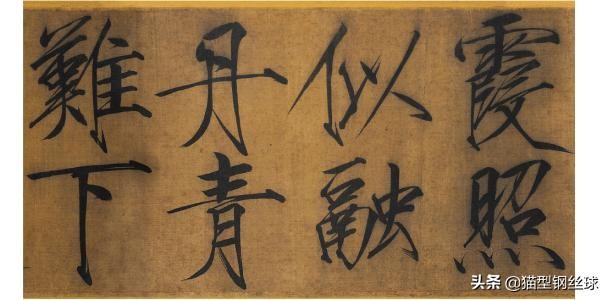 霞照
似融
丹青
難下
头条 @猫型钢丝球